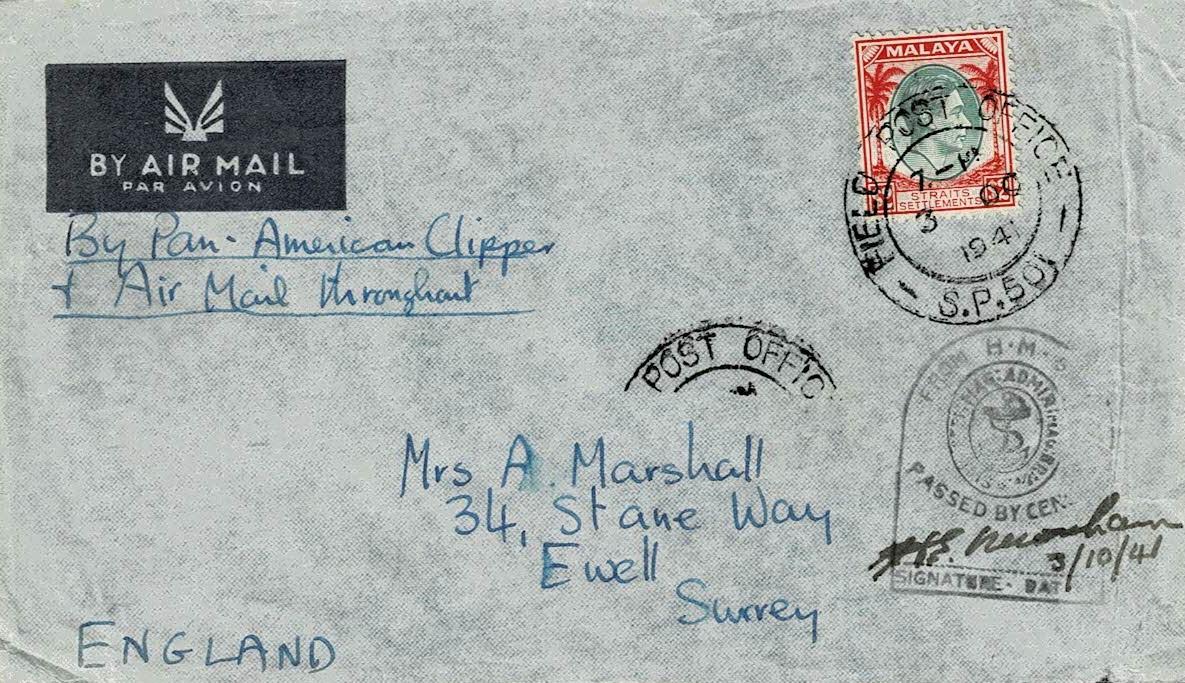 MALAYA
STRAITS
SETTLEMENTS
FIELD POST OFFICE
3 OC
1941
S.P.501
BY AIR MAIL
PAR AVION
By Pan-American Clipper
+ Air Mail throughout
POST OFFIC
FROM H.M.S
PASSED BY CEN
3/10/41
SIGNATURE - DAT
Mrs A. Marshall
34, Stane Way
Ewell
Surrey
ENGLAND